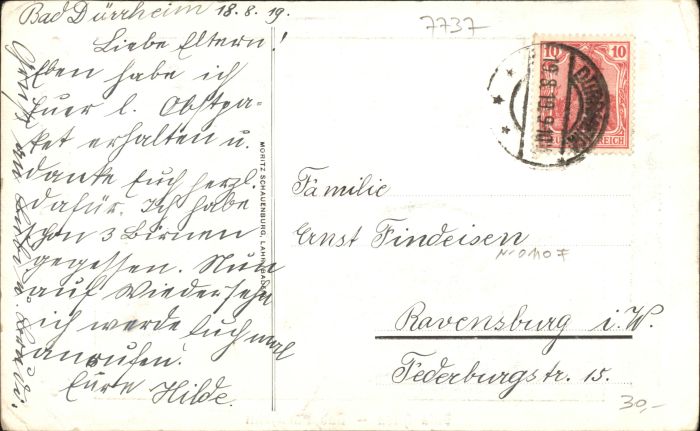 Bad Dürrheim 18.8.19.
Liebe Eltern!
Eben habe ich
Euer l. Obstpa-
ket erhalten u.
danke Euch herzl.
dafür. Ich habe
schon 3 Birnen
gegessen. Nun
auf Wiedersehn
ich werde Euch mal
anrufen.
Eure Hilde.
MORITZ SCHAUENBURG, LAHR (BADEN)
7737
10 10
19.8.19. 9-10
Familie
Ernst Findeisen
Ravensburg i.W.
Federburgstr. 15.
30,-